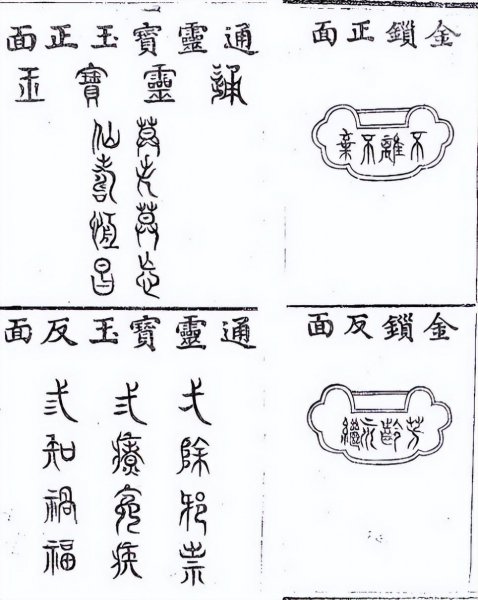 通靈寶玉正面
通靈寶玉
莫失莫忘
仙壽恆昌
金鎖正面
不離不棄
通靈寶玉反面
弌除邪祟
弍療冤疾
弎知禍福
金鎖反面
芳齡永繼